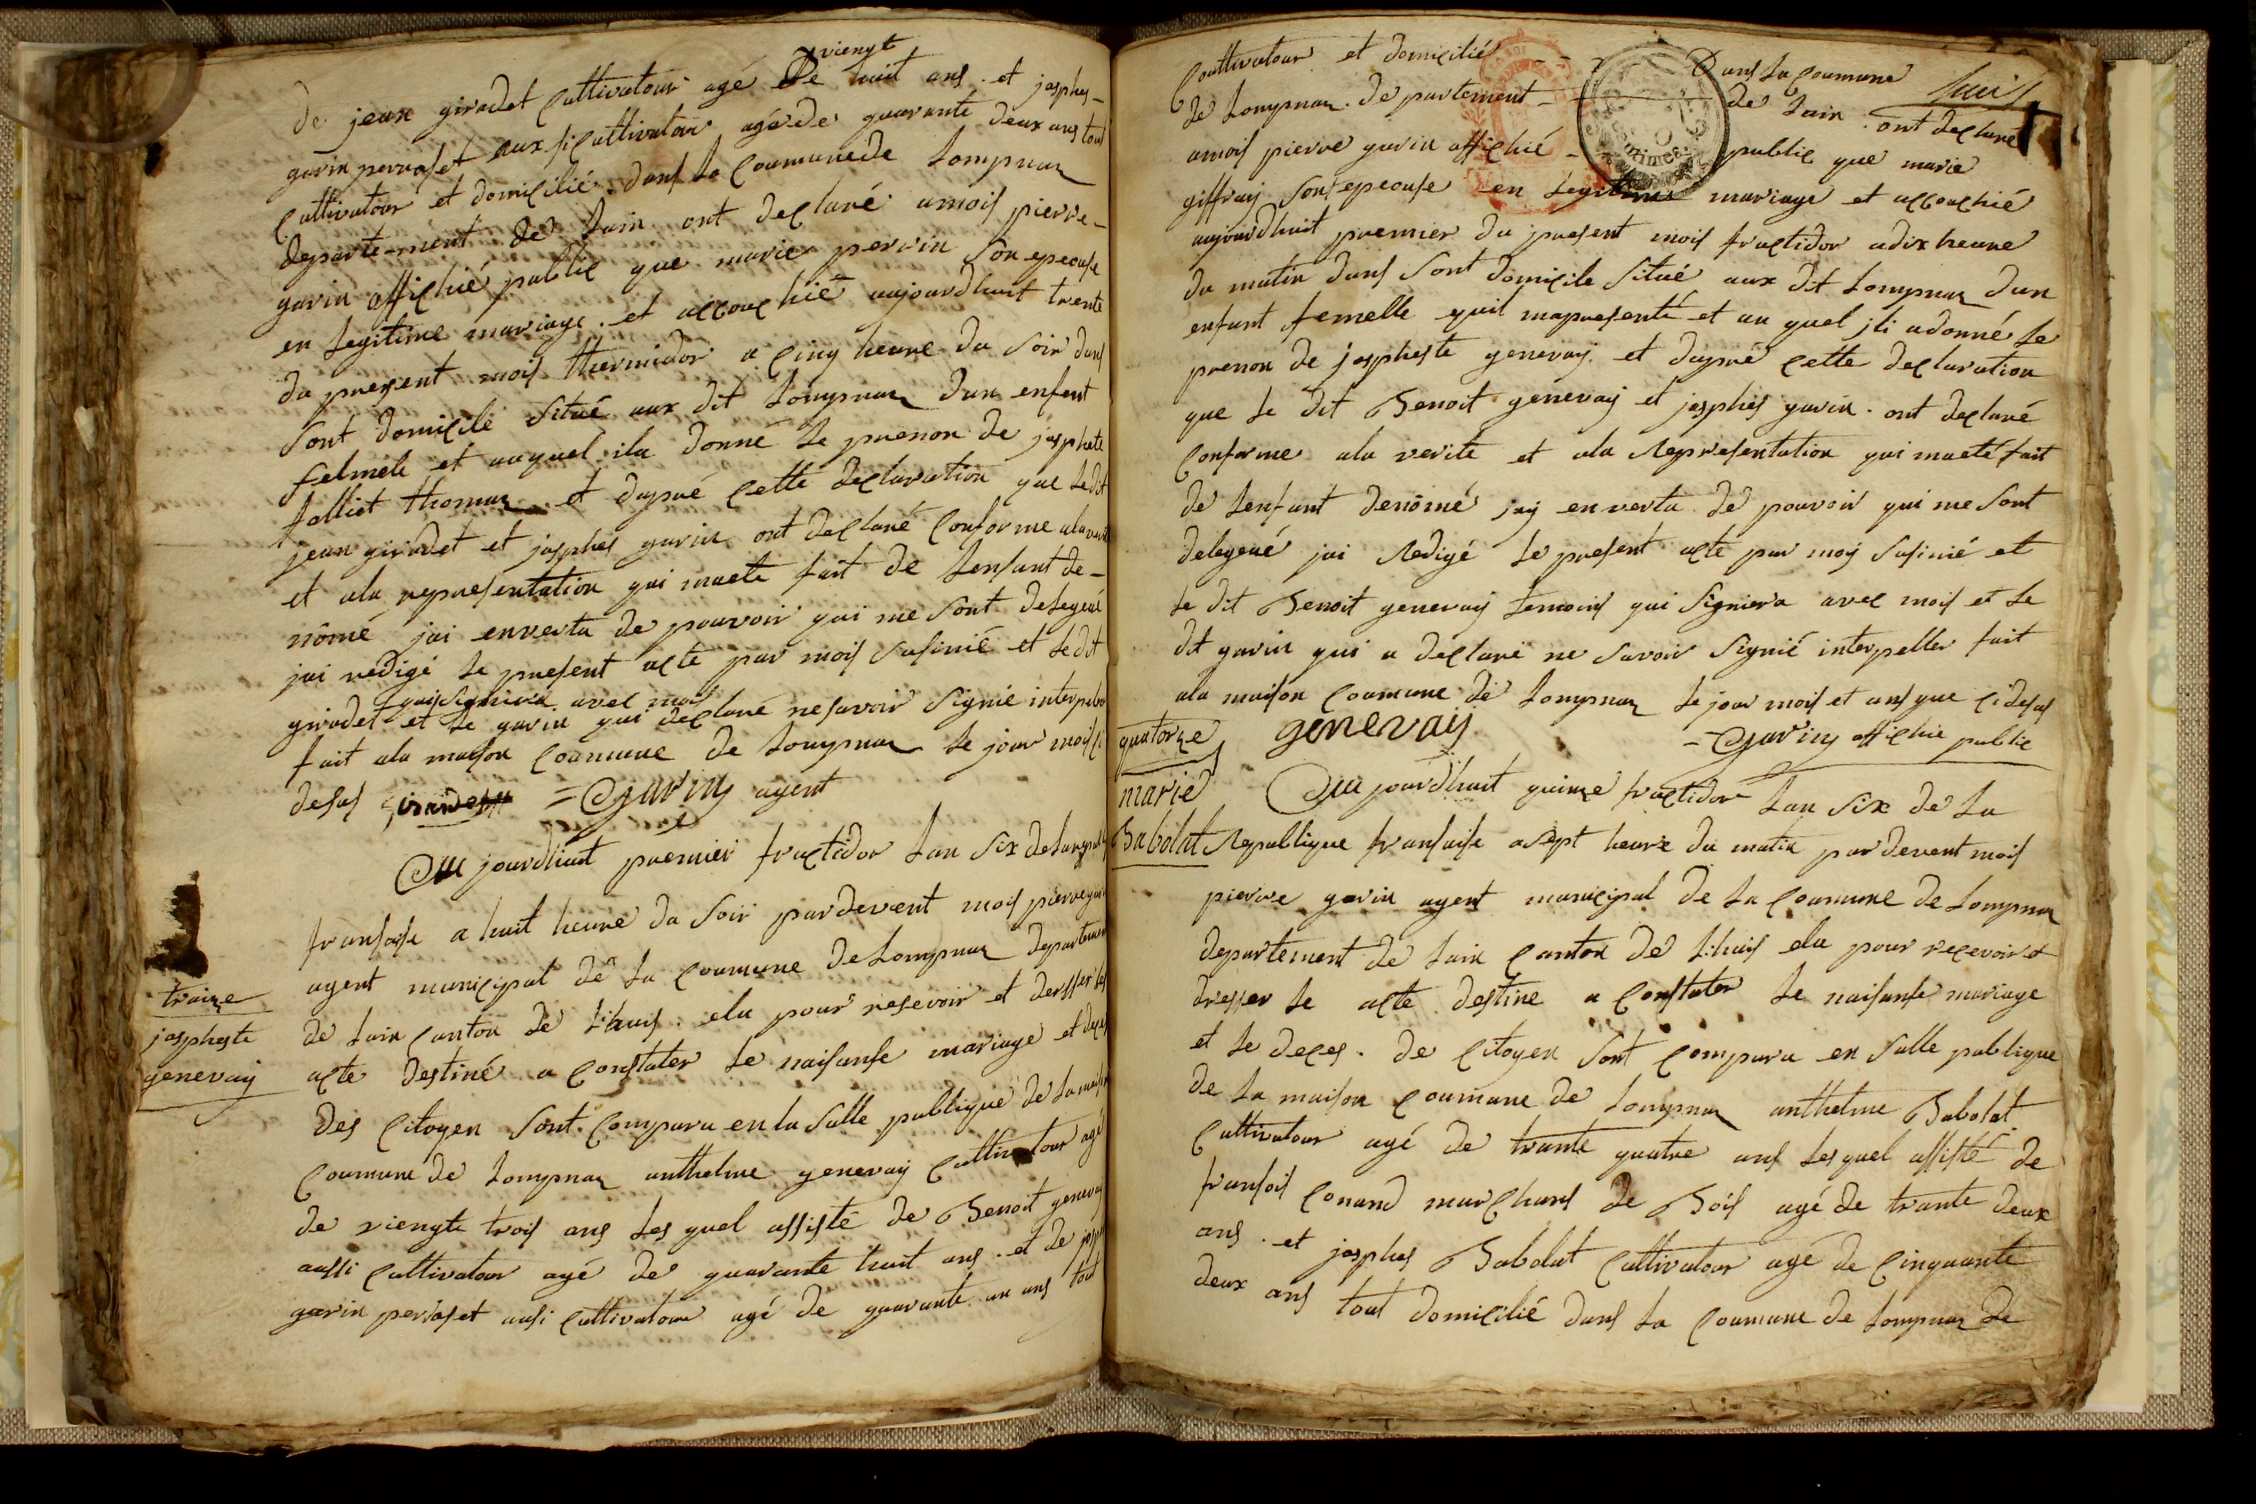 viengt
de jean giradet Cultivatour agé de huit ans . et josphes
gavin perraset aux si Cultivatour agé de quarante deux ans tout
Cultivatour et domicilié dans la Coumune de Lompnaz
departe-ment de Lain ont declaré a mois pierre
gavin offichié public que marie pervin son epeouse
en Legitime mariage . et accouchié aujourdhuit trente
du present mois thermidor a Cinq heure du Soir dans
Sont domicile Situé aux dit Lompnaz dun enfent
felmele et auquel il a donné le prenon de josphete
et dapré Cette declaration que le dit
jean giradet et josphes gavin ont declaré Conforme ala verité
et ala representation qui maeté fait de Lenfant de-
nômé jai envertu de pouvoir qui me sont delegeué
jai redigé le present acte par mois Susinié et le dit
qui Signiera avec mois
giradet et le gavin qui declaré ne savoir Signié interpeller
fait ala maison Coumune de Lompnaz le jour mois
desus = Gavin agent
Au jourdhuit premier fructidor Lan Six de La
fransaise a huit heure du Soir pardevent mois pierre gavin
agent municipal de La Coumune de Lompnaz departement
traize
de Lain Canton de Lhuis . elu pour resevoir et dersser les
jospheste
genevay
acte destiné a Constater le naisanse mariage et deces
des Citoyen Sont Comparu en la Salle publique de La maison
Coumune de Lompnaz anthelme genevay Cultivatour agé
de viengte trois ans Lesquel assisté de Benoit genevay
aussi Cultivatour agé de quarante huit ans . et de
gavin perraset ausi Cultivatour agé de quarante un ans tout
Coultivatour et domicilié - - - Dans La Coumune
Lhuis
de Lompnaz . departement - de Lain . ont declaré
amois pierre gavin offichié - public que marie
giffray Son epeouse en Legitime mariage et accouchié
aujourdhuit premier du present mois fructidor adix heure
du matin dans Sont domicile Situé aux dit Lompnaz dun
enfant femelle quil mapresenté et au quel jli adonné le
prenon de jospheste genevay . et dapré Cette declaration
que le dit Benoit genevay et josphes gavin . ont declaré
Conforme ala verité et ala Representation qui maeté fait
de Lenfant denômé jay en vertu de pouvoir qui me Sont
delegeué jai Redigé le present acte par moy Susinié et
le dit Benoit genevay temoins qui Signiera avec mois et le
dit gavin qui a declaré ne Savoir Signié interpeller fait
ala maison Coumune de Lompnaz le jour mois et ans que Cidesus
quatorze
genevay
= Gavin offichie public
marie
Babolat
Au jourdhuit quinze fructidor Lan Six de La
Republique fransaise asept heure du matin pardevent mois
pierre gavin agent municipal de La Coumune de Lompnaz
departement de Lain Canton de Lhuis elu pour recevoir et
dresser le acte destine a Constater le naisanse mariage
et le deces . de Citoyen Sont Comparu en Salle publique
de La maison Coumune de Lompnaz anthelme Babolat
Cultivatour agé de trante quatre ans Lesquel assisté de
fransois Conand marchans de Bois agé de trante deux
ans . et josphes Babolat Cultivatour agé de Cinquante
deux ans tout domicilié dans La Coumune de Lompnaz de